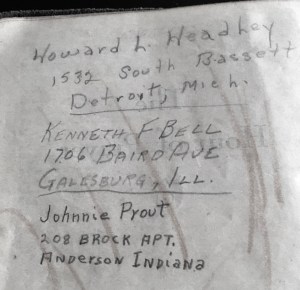 Howard L. Headley
1532 South Bassett
Detroit, Mich.
KENNETH F BELL
1706 BAIRD AVE
GALESBURG, ILL.
Johnnie Prout
208 BROCK APT.
ANDERSON INDIANA